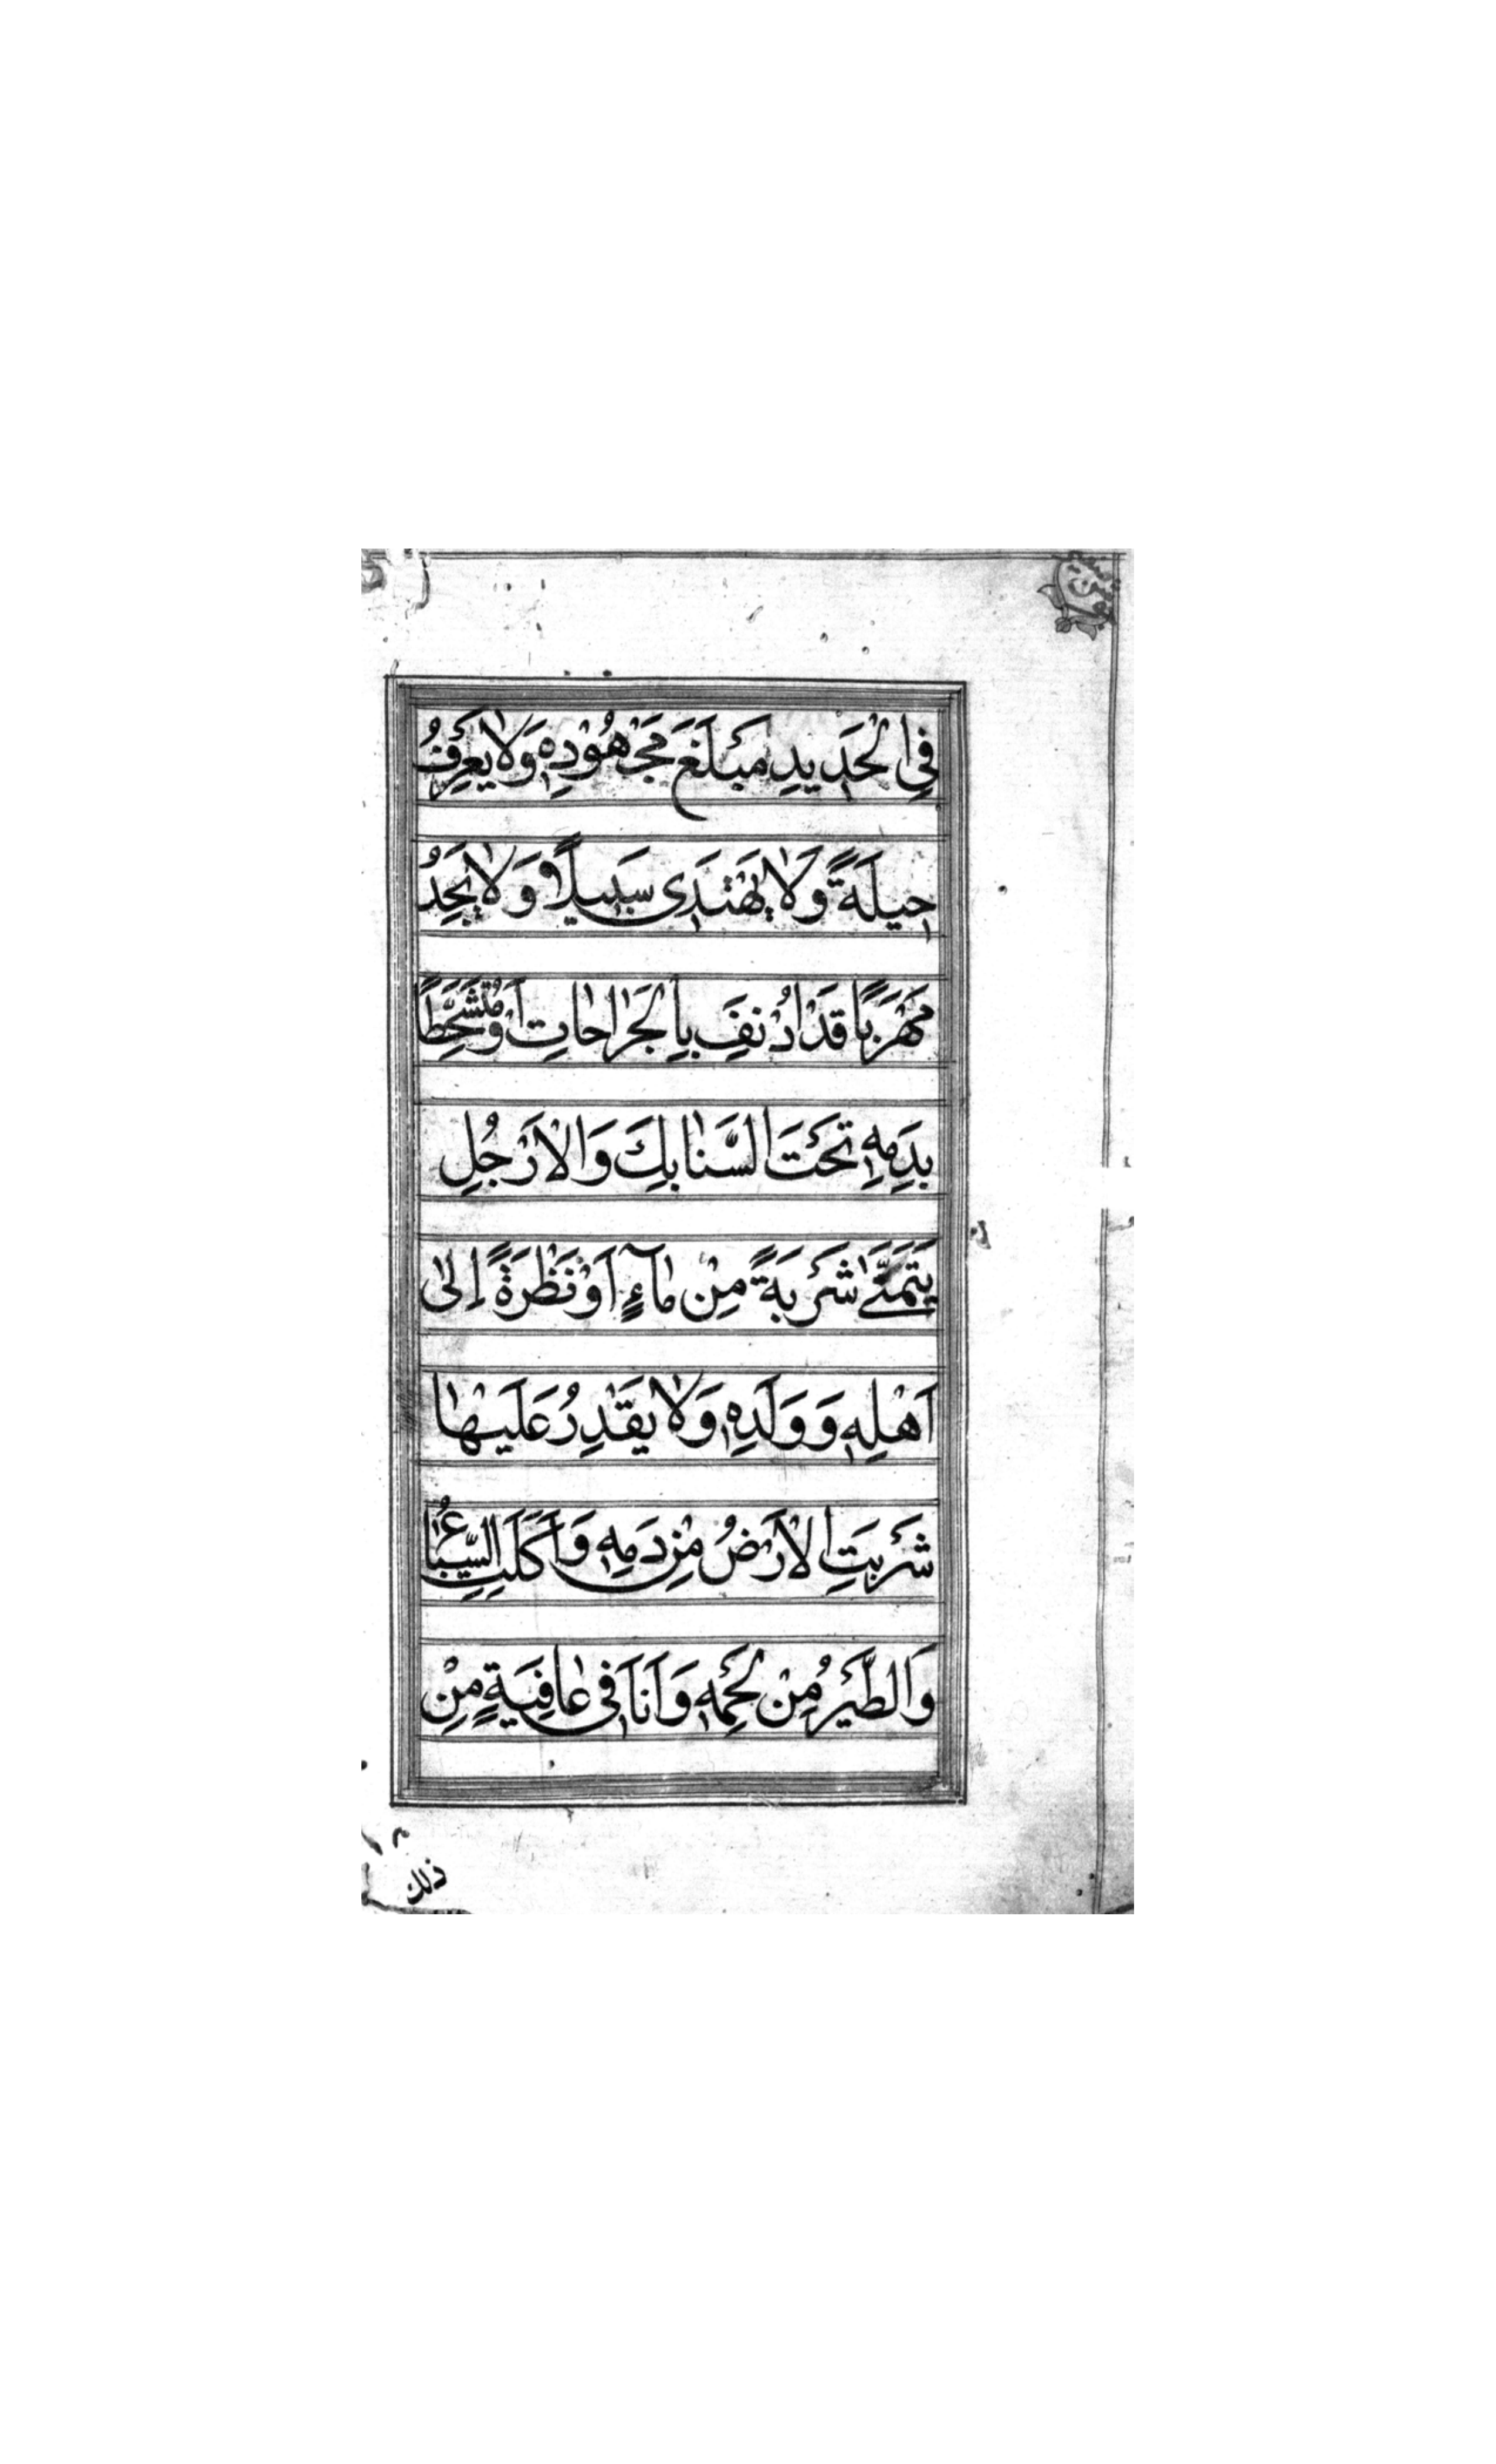 فِي الْحَدِيدِ مَبْلَغَ مَجْهُودِهِ وَلَا يَعْرِفُ
حِيلَةً وَلَا يَهْتَدِي سَبِيلًا وَلَا يَجِدُ
مَهْرَبًا قَدْ اُدْنِفَ بِالْجَرَاحَاتِ اَوْ مُتَشَحِّطًا
بِدَمِهِ تَحْتَ السَّنَابِكِ وَالْاَرْجُلِ
يَتَمَنَّى شَرْبَةً مِنْ مَاءٍ اَوْ نَظْرَةً اِلَى
اَهْلِهِ وَوَلَدِهِ وَلَا يَقْدِرُ عَلَيْهَا
شَرِبَتِ الْاَرْضُ مِنْ دَمِهِ وَاَكَلَتِ السِّبَاعُ
وَالطَّيْرُ مِنْ لَحْمِهِ وَاَنَا فِي عَافِيَةٍ مِنْ
ذلك